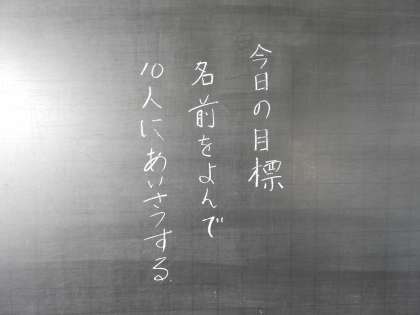 今日の目標
名前をよんで
10人に、あいさつする